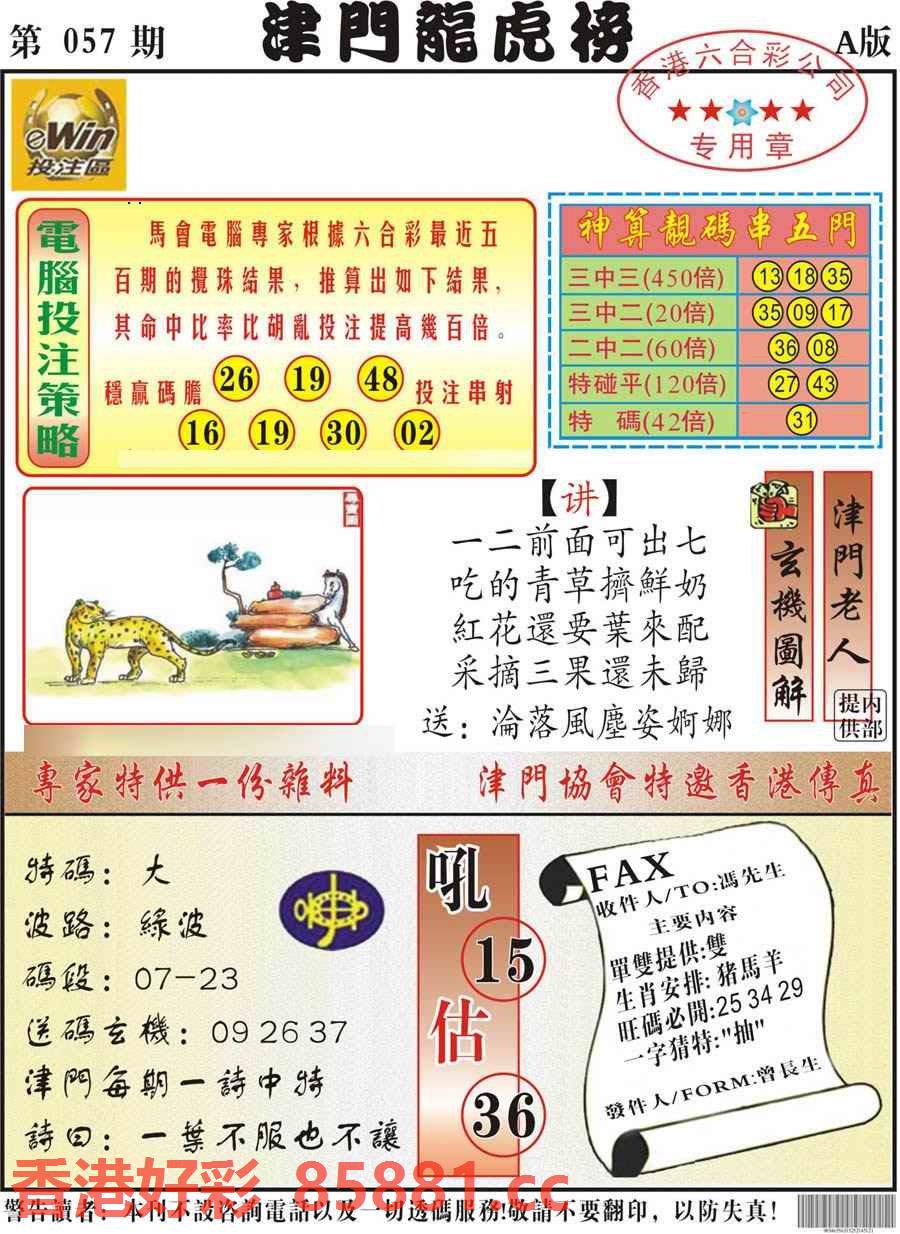 第 057 期
津門龍虎榜
A版
香港六合彩公司
专用章
eWin
投注區
電腦投注策略
馬會電腦專家根據六合彩最近五
百期的攪珠結果，推算出如下結果，
其命中比率比胡亂投注提高幾百倍。
穩贏碼膽 26 19 48 投注串射
16 19 30 02
神算靚碼串五門
三中三(450倍) 13 18 35
三中二(20倍) 35 09 17
二中二(60倍) 36 08
特碰平(120倍) 27 43
特 碼(42倍) 31
【讲】
一二前面可出七
吃的青草擠鮮奶
紅花還要葉來配
采摘三果還未歸
送：淪落風塵姿婀娜
玄機圖解
津門老人
内部提供
專家特供一份雜料
津門協會特邀香港傳真
特碼：大
波路：綠波
碼段：07-23
送碼玄機：09 26 37
津門每期一詩中特
詩曰：一葉不服也不讓
吼
15
估
36
FAX
收件人/TO:馮先生
主要内容
單雙提供:雙
生肖安排:猪馬羊
旺碼必開:25 34 29
一字猜特:"抽"
發件人/FORM:曾長生
香港好彩 85881.cc
警告讀者：本刊不設咨詢電話以及一切透碼服務!敬請不要翻印，以防失真!